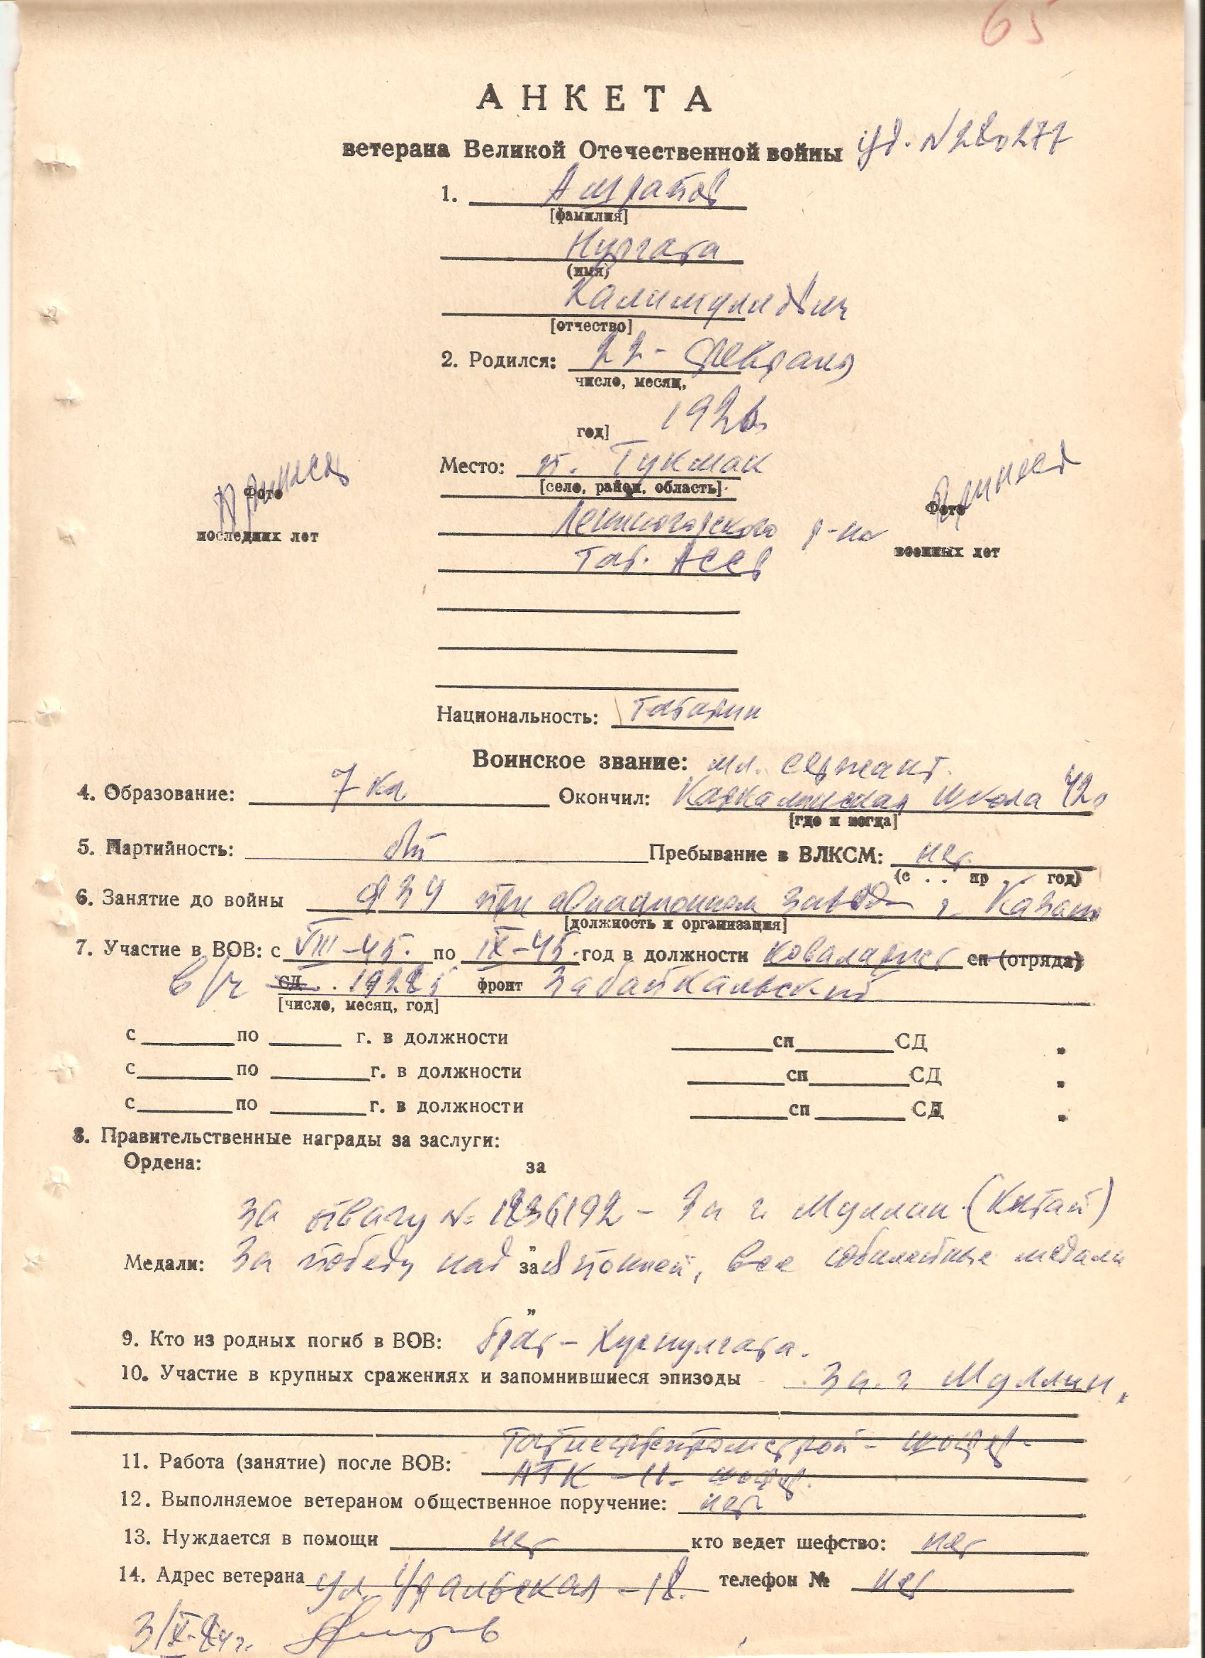 65
АНКЕТА
ветерана Великой Отечественной войны уд. № 280277
1. Ашрапов
[фамилия]
Нургата
(имя)
Калимуллович
[отчество]
2. Родился: 22 - февраля
число, месяц,
1926
год]
Место: п. Тукмак
[село, район, область]
Лениногорского р-на
Тат. АССР
Фото
последних лет
Принесет
Фото
военных лет
Национальность: татарин
Воинское звание: мл. сержант.
4. Образование: 7 кл Окончил: школа 42г
[где и когда]
5. Партийность: б/п Пребывание в ВЛКСМ: нет.
(с . . пр . . год)
6. Занятие до войны ФЗУ при авиационном заводе г. Казань
[должность и организация]
7. Участие в ВОВ: с VIII-45. по IX-45. год в должности кавалерист сп (отряда)
в/ч СД. фронт Забайкальский
[число, месяц, год]
с по г. в должности сп СД "
с по г. в должности сп СД "
с по г. в должности сп СД "
8. Правительственные награды за заслуги:
Ордена: за
За отвагу № 1236192 - За г. Муллин (Китай)
"
Медали: За победу над за Японией, все юбилейные медали
"
9. Кто из родных погиб в ВОВ: брат -
10. Участие в крупных сражениях и запомнившиеся эпизоды За г. Муллин.
Татнефтепромстрой - шофер
11. Работа (занятие) после ВОВ: АТК - 11 - шофер.
12. Выполняемое ветераном общественное поручение: нет
13. Нуждается в помощи нет кто ведет шефство: нет
14. Адрес ветерана ул. Уральская - 18. телефон № нет
3/X-84г.